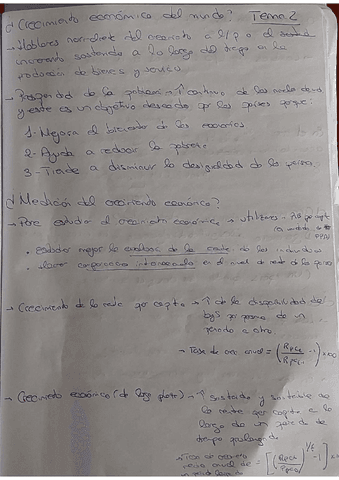 ¿Crecimiento económico del mundo? Tema 2
→ Hablamos normalmente del crecimiento a l/p o al
incremento sostenido a lo largo del tiempo en la
producción de bienes y servicios
→ Prosperidad de la población → ↑ continuo de los niveles de
y este es un objetivo deseado por los países porque:
1- Mejora el bienestar de los
2- Ayuda a reducir la pobreza
3- Tiende a disminuir la desigualdad de los países.
¿Medición del crecimiento económico?
→ Para estudiar el crecimiento económico → utilizamos
• estudiar mejor la evolución de la renta de los individuos
• hacer comparaciones internacionales en el nivel de renta de los países
→ Crecimiento de la renta per cápita → ↑ de la disponibilidad de
bys por persona de un
periodo a otro.
→ Tasa de crec anual = ( -1) x100
→ Crecimiento económico (de largo plazo) → ↑ sostenido y sostenible de
la renta per cápita a lo
largo de un periodo de
tiempo prolongado